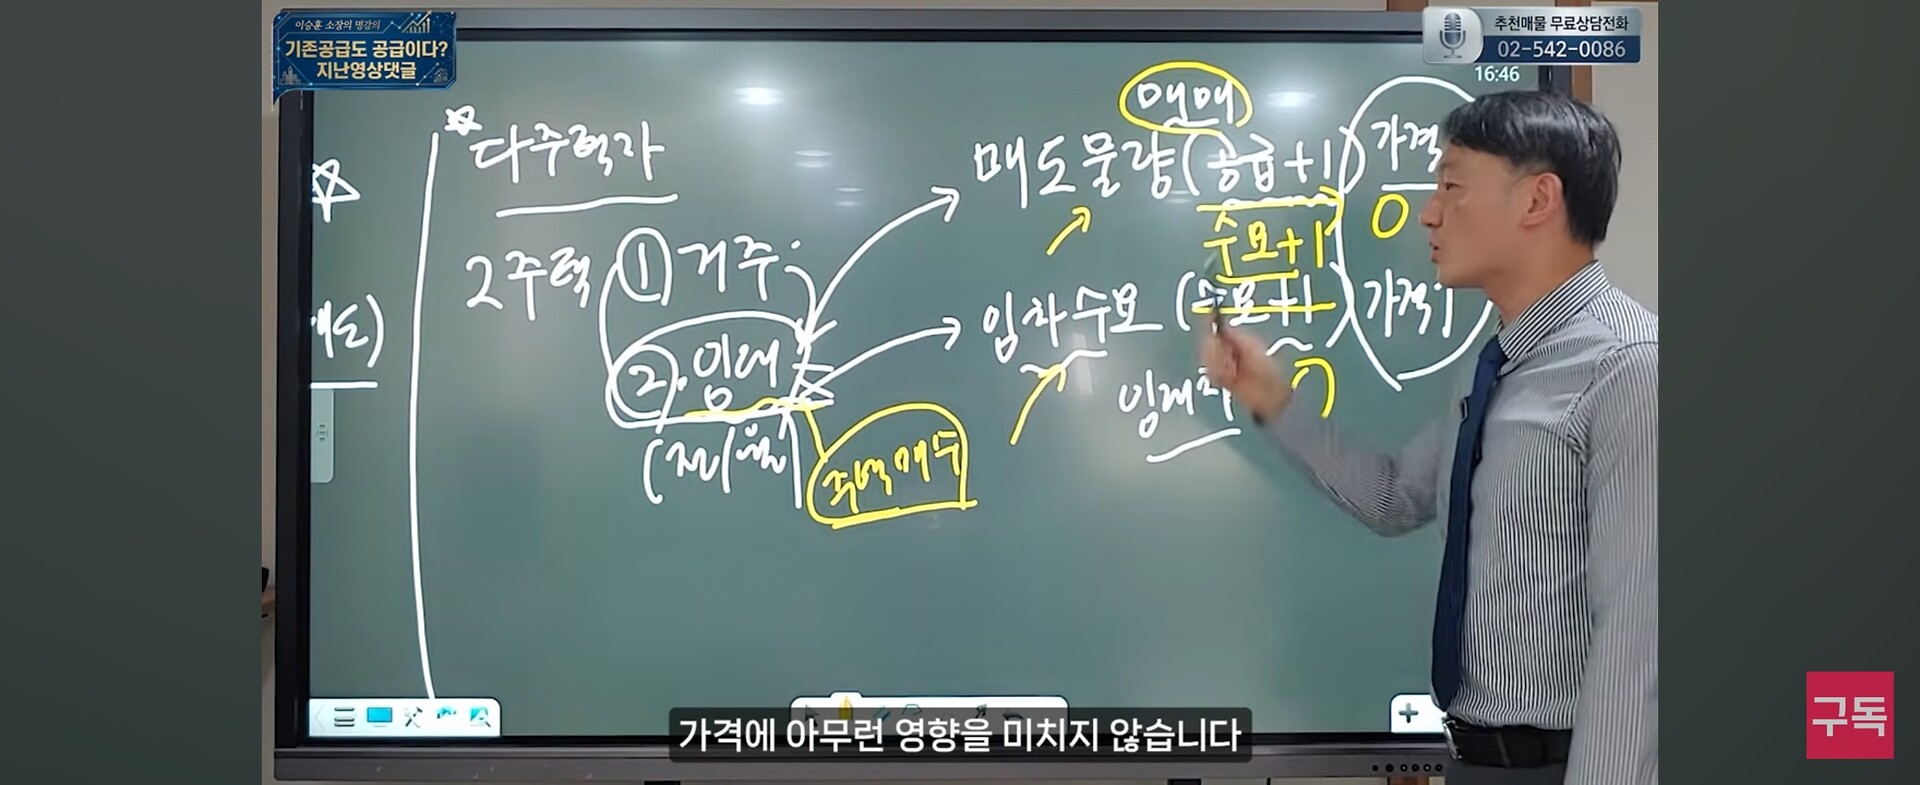 이승훈 소장의 명강의
기존공급도 공급이다?
지난영상댓글
추천매물 무료상담전화
02-542-0086
16:46
매매
다주택자
매도물량(공급+1) 가격
수요+1 0
2주택 ① 거주
임차수요 (수요+1) 가격
② 임대
임대차
(전/월)
주택매수
가격에 아무런 영향을 미치지 않습니다
구독